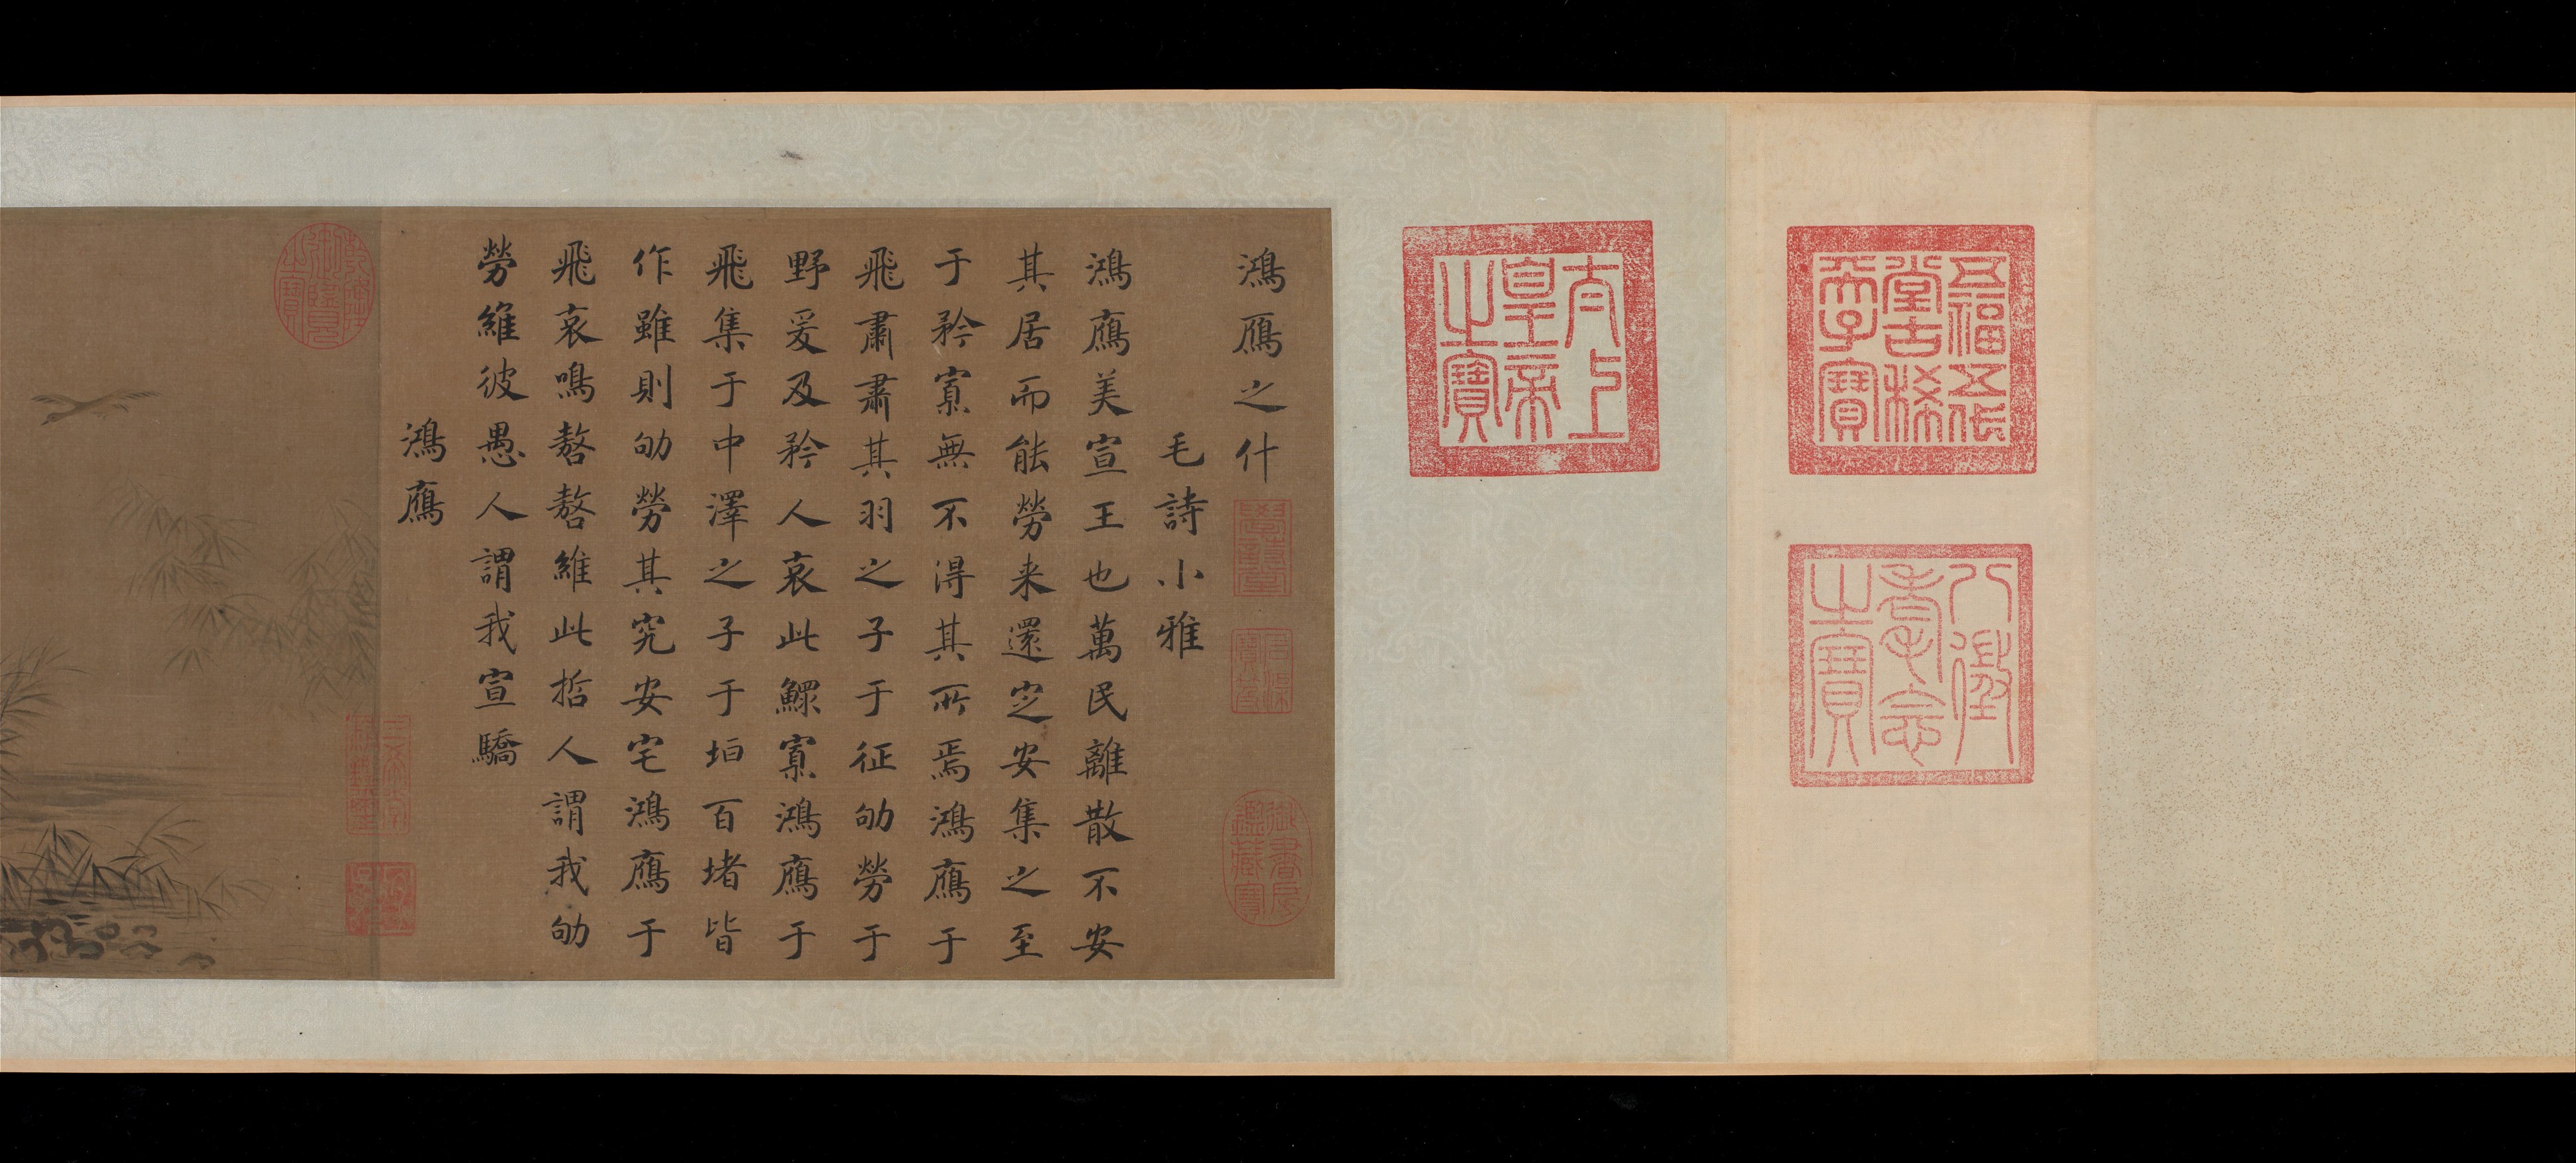 五福五代
堂古稀
天子寶
八徵
耄念
之寶
太上
皇帝
之寶
鴻鴈之什
學詩堂
石渠
寶笈
御書房
鑒藏寶
毛詩小雅
鴻鴈美宣王也萬民離散不安
其居而能勞来還定安集之至
于矜寡無不得其所焉鴻鴈于
飛肅肅其羽之子于征劬勞于
野爰及矜人哀此鰥寡鴻鴈于
飛集于中澤之子于垣百堵皆
作雖則劬勞其究安宅鴻鴈于
飛哀鳴嗸嗸維此哲人謂我劬
勞維彼愚人謂我宣驕
鴻鴈
乾隆
御覽
之寶